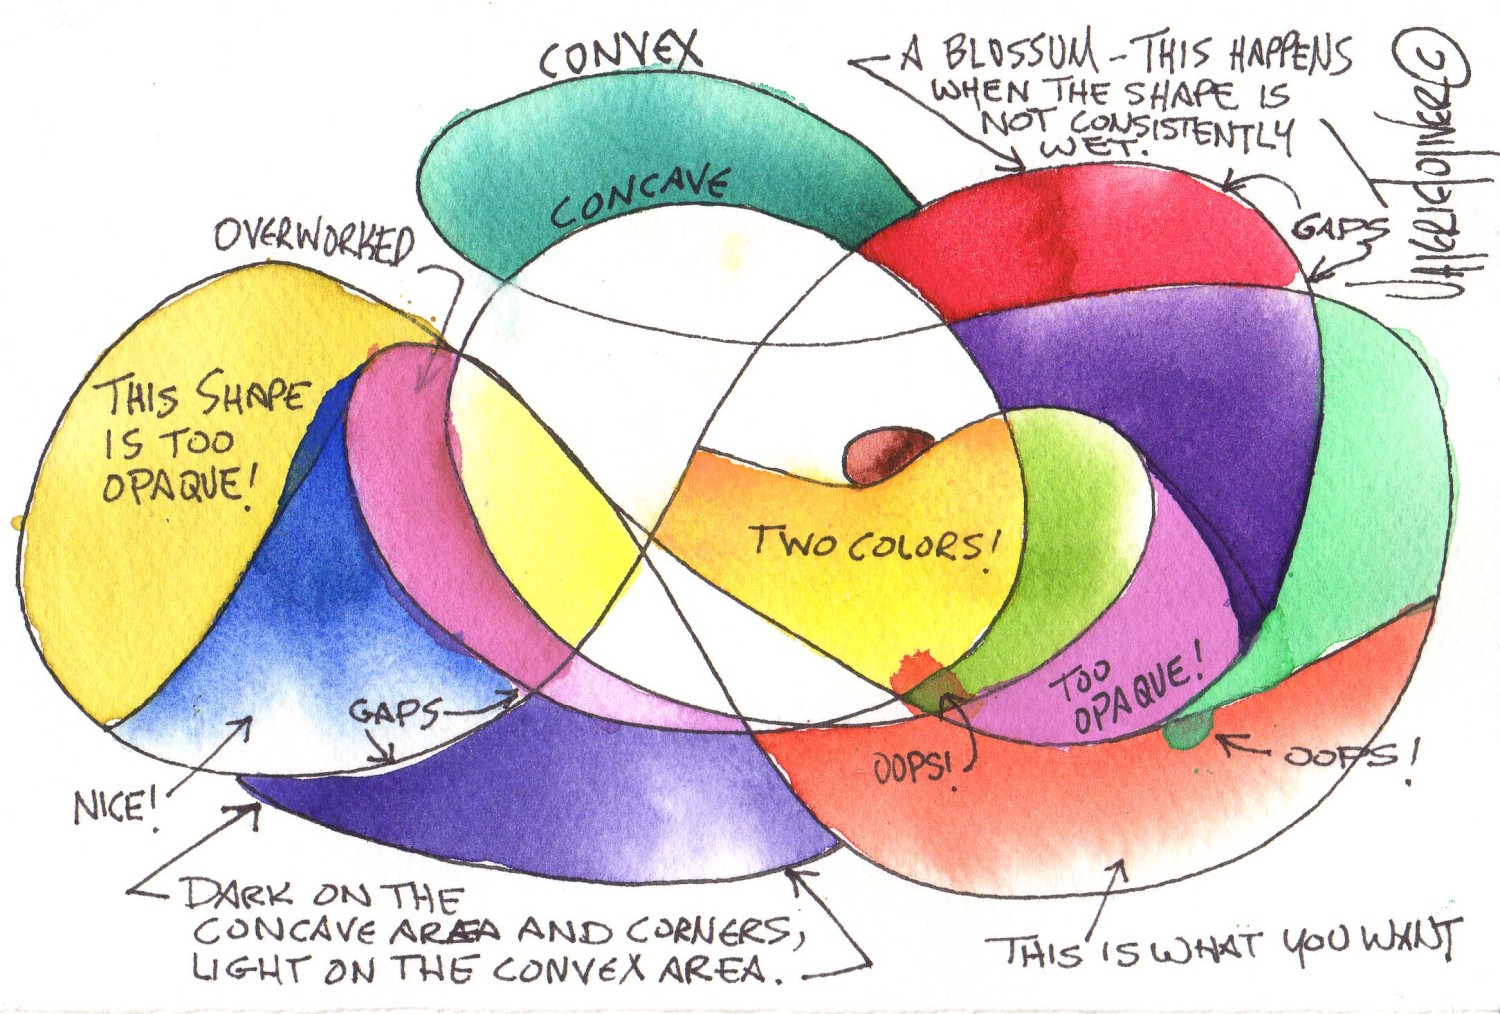 CONVEX
A BLOSSUM - THIS HAPPENS
WHEN THE SHAPE IS
NOT CONSISTENTLY
WET.
CONCAVE
GAPS
OVERWORKED
THIS SHAPE
IS TOO
OPAQUE!
TWO COLORS!
TOO
OPAQUE!
GAPS
OOPS!
OOPS!
NICE!
DARK ON THE
CONCAVE AREA AND CORNERS,
LIGHT ON THE CONVEX AREA.
THIS IS WHAT YOU WANT